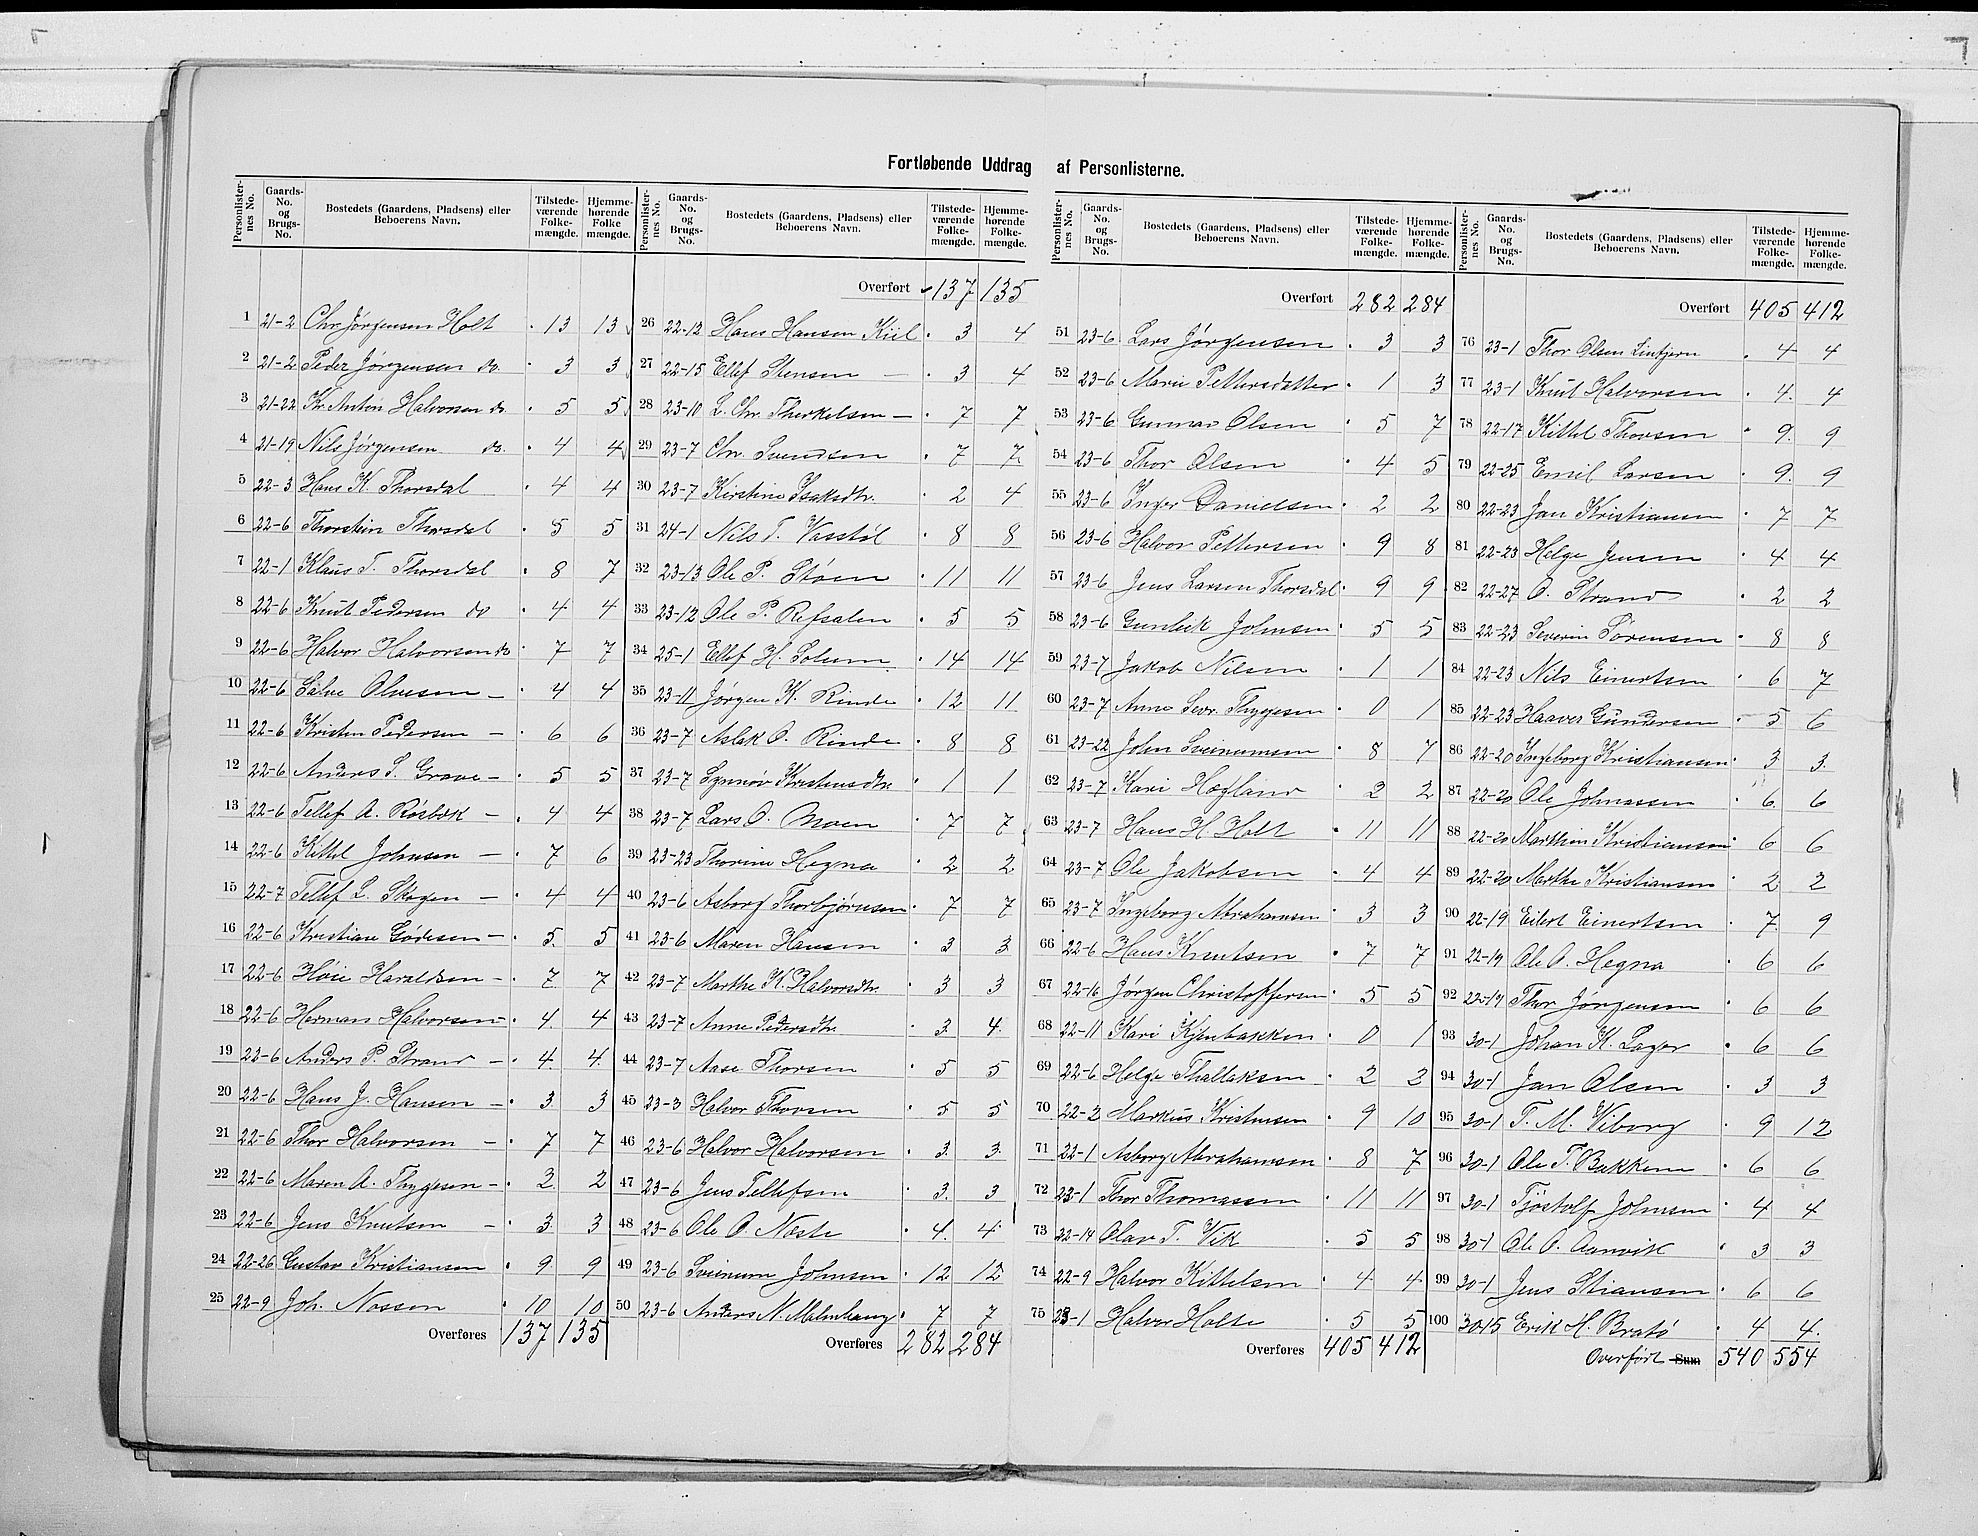 Fortløbende Uddrag af Personlisterne.
Personlister-nes No. Gaards-No. og Brugs-No. Bostedets (Gaardens, Pladsens) eller Beboerens Navn. Tilstede-værende Folke-mængde. Hjemme-hørende Folke mængde.
1 21-2 Chr Jørgensen Holt 13 13
2 21-2 Peder Jörgensen do. 3 3
3 21-22 Kr. Anton Halvorsen do. 5 5
4 21-19 Nils Jørgensen do. 4 4
5 22-3 Hans K. Thorsdal 4 4
6 22-6 Thorstein Thorsdal 5 5
7 22-1 Klaus T. Thorsdal 8 7
8 22-6 Knut Pedersen do 4 4
9 22-6 Halvor Halvorsen do 7 7
10 22-6 Salve Olvesen – 4 4
11 22-6 Kristen Pedersen – 6 6
12 22-6 Anders S. Grave – 5 5
13 22-6 Tellef A. Rösbæk – 4 4
14 22-6 Kittel Johnsen – 7 6
15 22-7 Tellef L. Skogen – 4 4
16 22-6 Kristiane Gödesen – 5 5
17 22-6 Höie Haraldsen – 7 7
18 22-6 Herman Halvorsen – 4 4
19 22-6 Anders P. Strand – 4 4
20 22-6 Hans J. Hansen – 3 3
21 22-6 Thor Halvorsen – 7 7
22 22-6 Maren A. Thygesen – 2 2
23 22-6 Jens Knutsen – 3 3
24 22-26 Gustav Kristiansen 9 9
25 22-9 Joh. Nossen 10 10
Overføres 137 135
Personlister-nes No. Gaards-No. og Brugs-No. Bostedets (Gaardens, Pladsens) eller Beboerens Navn. Tilstede-værende Folke-mængde. Hjemme-hørende Folke-mængde.
Overført 137 135
26 22-12 Hans Hansen Kiil 3 4
27 22-15 Ellef Stensen – 3 4
28 23-10 L. Chr. Therkelsen – 7 7
29 23-7 Chr. Svendsen 7 7
30 23-7 Kirstine Isaksdtr. 2 4
31 24-1 Nils T. Vasstøl 8 8
32 23-13 Ole P. Støen 11 11
33 23-12 Ole P. Refsalen 5 5
34 25-1 Ellef H. Solum 14 14
35 23-11 Jørgen K. Rinde 12 11
36 23-7 Aslak O. Rinde 8 8
37 23-7 Synnøv Kristensdtr. 1 1
38 23-7 Lars O. Moen 7 7
39 23-23 Thorine Hegna 2 2
40 23-6 Asborg Thorbjörnsen 7 7
41 23-6 Maren Hansen 3 3
42 23-7 Marthe K. Halvorsdtr. 3 3
43 23-7 Anne Pedersdtr. 3 4
44 23-7 Aase Thorsen 5 5
45 23-3 Halvor Thorsen 5 5
46 23-6 Halvor Halvorsen 3 3
47 23-6 Jens Tellefsen 3 3
48 23-6 Ole O. Næste 4 4
49 23-6 Sveinum Johnsen 12 12
50 23-6 Anders N. Malmhaug 7 7
Overføres 282 284
Personlister-nes No. Gaards-No. og Brugs-No. Bostedets (Gaardens, Pladsens) eller Beboerens Navn. Tilstede-værende Folke-mængde. Hjemme-hørende Folke-mængde.
Overført 282 284
51 23-6 Lars Jørgensen 3 3
52 23-6 Marie Pettersdatter 1 3
53 23-6 Gunnar Olsen 5 7
54 23-6 Thor Olsen 4 5
55 23-6 Inger Danielsen 2 2
56 23-6 Halvor Pettersen 9 8
57 23-6 Jens Larsen Thorsdal 9 9
58 23-6 Gunleik Johnsen 5 5
59 23-7 Jakob Nilsen 1 1
60 23-7 Anne Sevr. Thygesen 0 1
61 23-22 John Sveinumsen 8 7
62 23-7 Kari Hegland 2 2
63 23-7 Hans H. Holt 11 11
64 23-7 Ole Jakobsen 4 4
65 23-7 Ingeborg Abrahamsen 3 3
66 22-6 Hans Knutsen 7 7
67 22-16 Jørgen Christoffersen 5 5
68 22-11 Kari Kjenbakken 0 1
69 22-6 Helge Thallaksen 2 2
70 22-2 Markus Kristensen 9 10
71 22-1 Asborg Abrahamsen 8 7
72 23-1 Thor Thomassen 11 11
73 22-14 Olav T. Vik 5 5
74 22-9 Halvor Kittelsen 4 4
75 23-1 Halvor Holte 5 5
Overføres 405 412
Personlister-nes No. Gaards-No. og Brugs-No. Bostedets (Gaardens, Pladsens) eller Beboerens Navn. Tilstede-værende Folke-mængde. Hjemme-hørende Folke-mængde.
Overført 405 412
76 23-1 Thor Olsen Lintjern 4 4
77 23-1 Knut Halvorsen 4 4
78 22-17 Kittel Thorsen 9 9
79 22-25 Emil Larsen 9 9
80 22-23 Jan Kristiansen 7 7
81 22-23 Helge Jensen 4 4
82 22-27 O. Strand 2 2
83 22-23 Severin Sörensen 8 8
84 22-23 Nils Einertsen 6 7
85 22-23 Haaver Gundersen 5 6
86 22-20 Ingeborg Kristiansen 3 3
87 22-20 Ole Johnassen 6 6
88 22-20 Marthin Kristiansen 6 6
89 22-20 Marthe Kristiansen 2 2
90 22-19 Eilert Einertsen 7 9
91 22-19 Ole O. Hegna 6 6
92 22-19 Thor Jørgensen 6 6
93 30-1 Johan K. Lager 6 6
94 30-1 Jan Olsen 3 3
95 30-1 T. M. Viborg 9 12
96 30-1 Ole T. Bakken 6 6
97 30-1 Tjöstolf Johnsen 4 4
98 30-1 Ole O. Aanvik 3 3
99 30-1 Jens Stiansen 6 6
100 30-15 Erik H. Bratö 4 4
Overført Sum 540 554